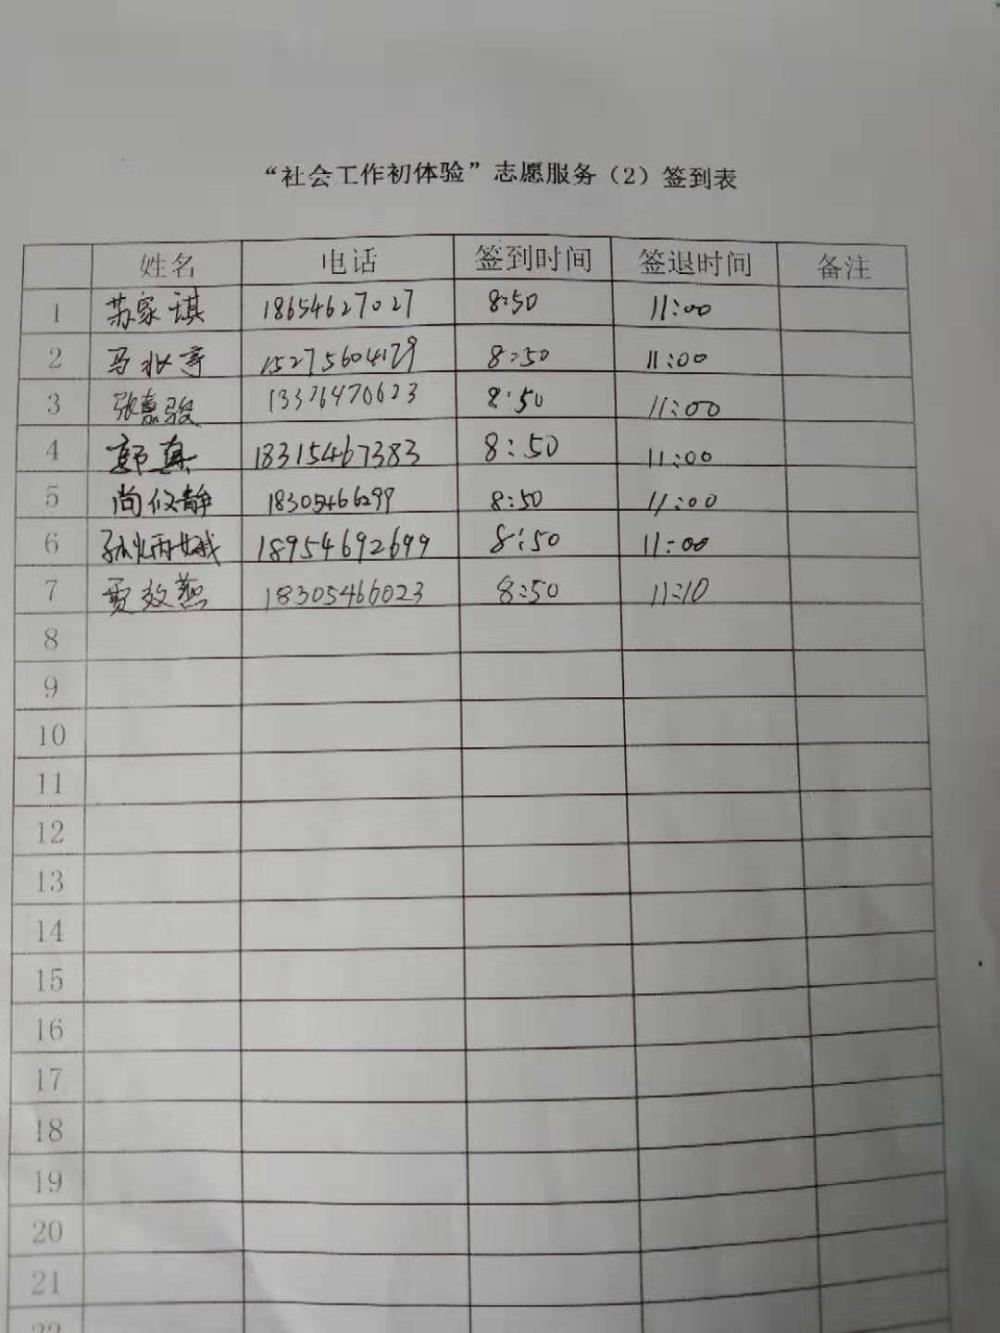 “社会工作初体验”志愿服务（2）签到表
姓名 电话 签到时间 签退时间 备注
1 苏家琪 18654627027 8:50 11:00
2 马 15275604179 8:50 11:00
3 张嘉骏 13376470623 8:50 11:00
4 郭真 18315467383 8:50 11:00
5 尚俊静 18305466299 8:50 11:00
6 孙炳娥 18954692699 8:50 11:00
7 贾效燕 18305466023 8:50 11:10
8
9
10
11
12
13
14
15
16
17
18
19
20
21
22